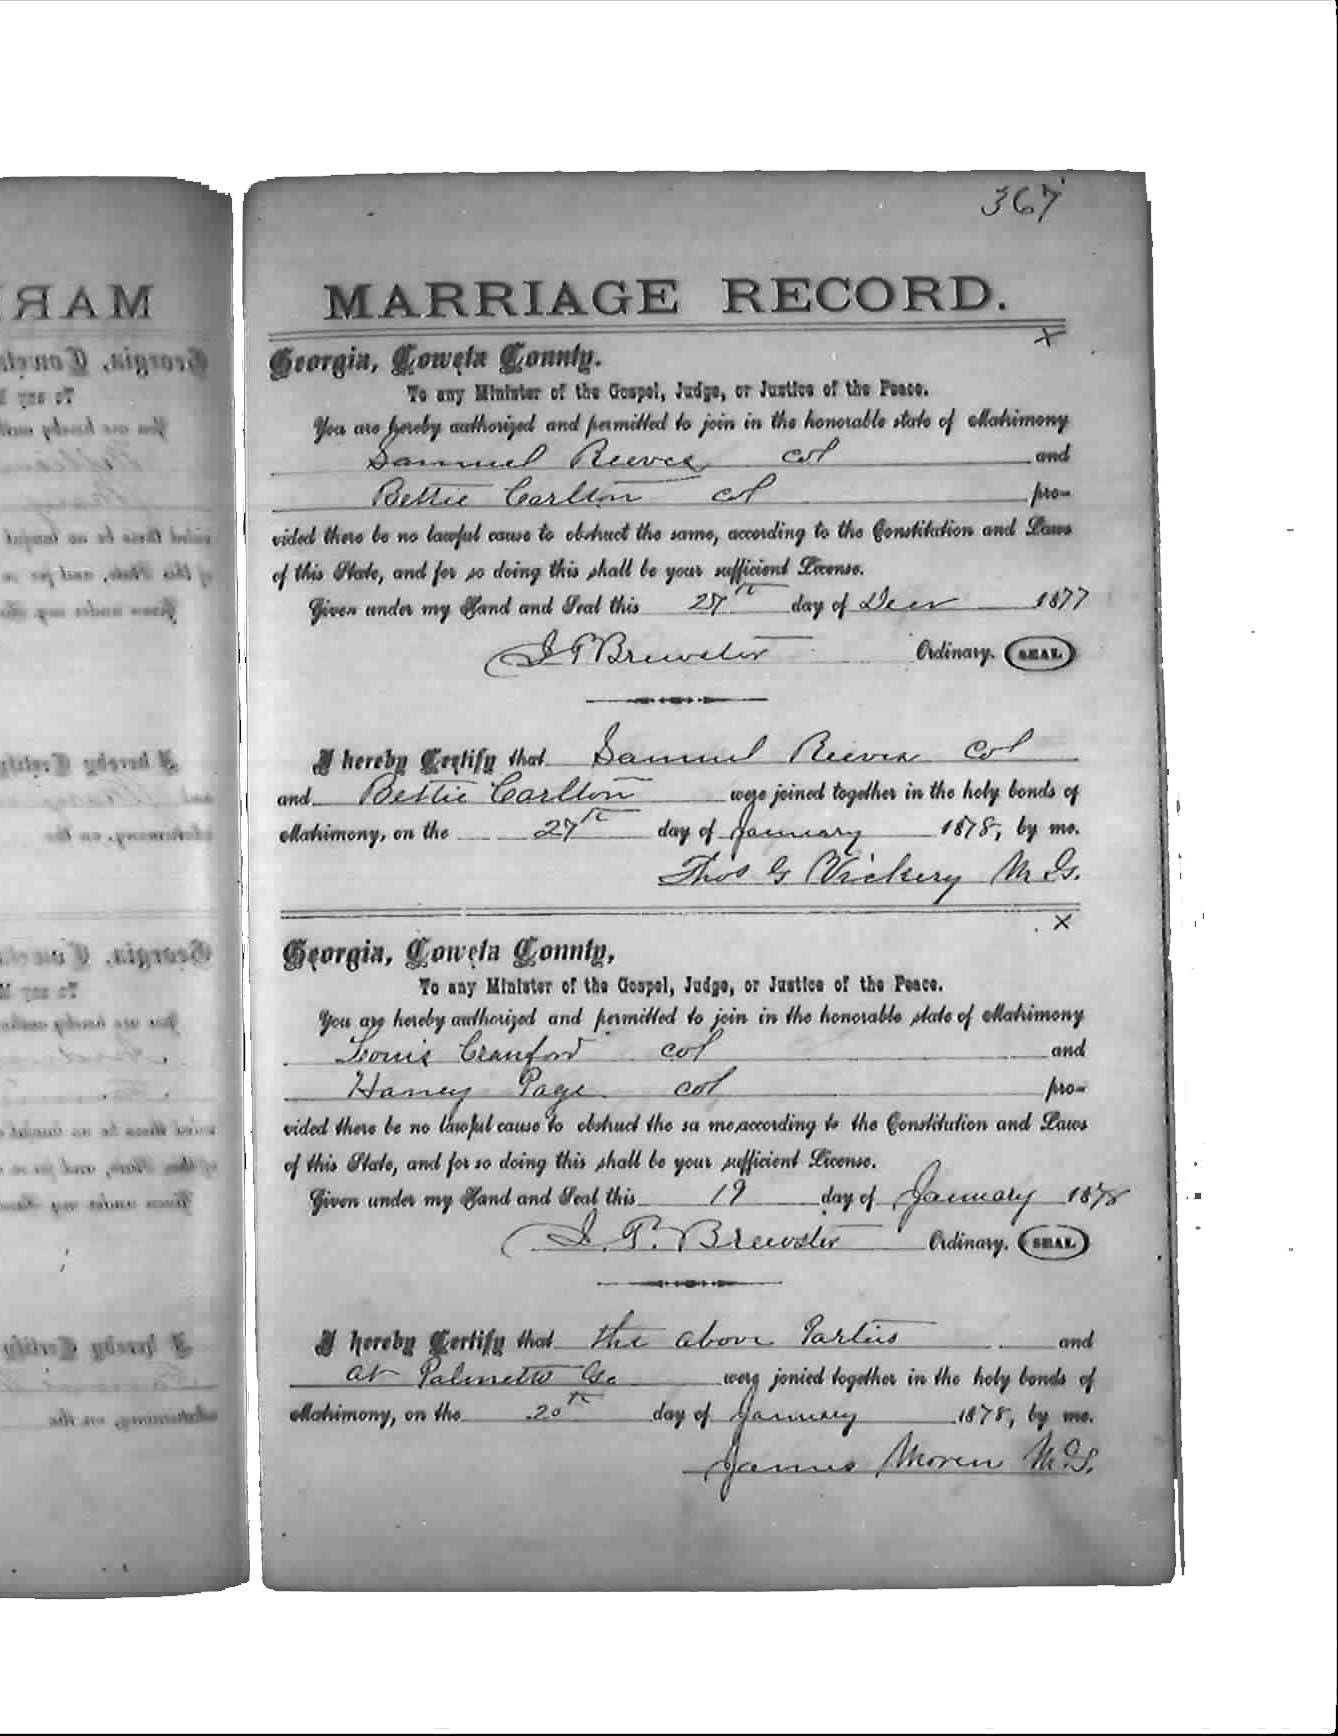 367
MARRIAGE RECORD.
x
Georgia, Coweta County.
To any Minister of the Gospel, Judge, or Justice of the Peace.
You are hereby authorized and permitted to join in the honorable state of Matrimony
Samuel Reeves col and
Bettie Carlton col pro-
vided there be no lawful cause to obstruct the same, according to the Constitution and Laws
of this State, and for so doing this shall be your sufficient License.
Given under my Hand and Seal this 27th day of Decr 1877
J P Brewster Ordinary. SEAL
I hereby Certify that Samuel Reeves Col
and Bettie Carlton were joined together in the holy bonds of
Matrimony, on the 27th day of January 1878, by me.
Thos G Vickery M G.
x
Georgia, Coweta Connty,
To any Minister of the Gospel, Judge, or Justice of the Peace.
You are hereby authorized and permitted to join in the honorable state of Matrimony
Louis Cranford col and
Haney Page col pro-
vided there be no lawful cause to obstruct the sa me,according to the Constitution and Laws
of this State, and for so doing this shall be your sufficient License.
Given under my Hand and Seal this 19 day of January 1878
J. P. Brewster Ordinary. SEAL
I hereby Certify that the above Parties and
at Palmetto Ga were jonied together in the holy bonds of
Matrimony, on the 20th day of January 1878, by me.
James Moren M.G.